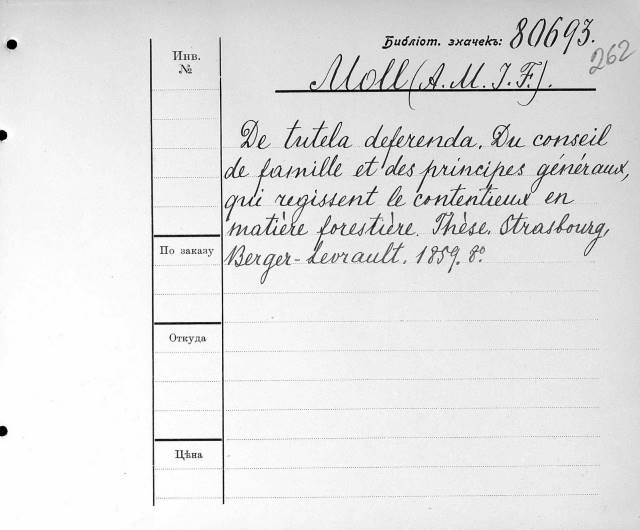 Библіот. значекъ: 80693.
262
Инв.
№
Moll (A. M. J. F.).
De tutela deferenda. Du conseil
de famille et des principes généraux,
qui regissent le contentieux en
matière forestière. Thèse. Strasbourg,
По заказу
Berger-Levrault. 1859. 8º.
Откуда
Цѣна